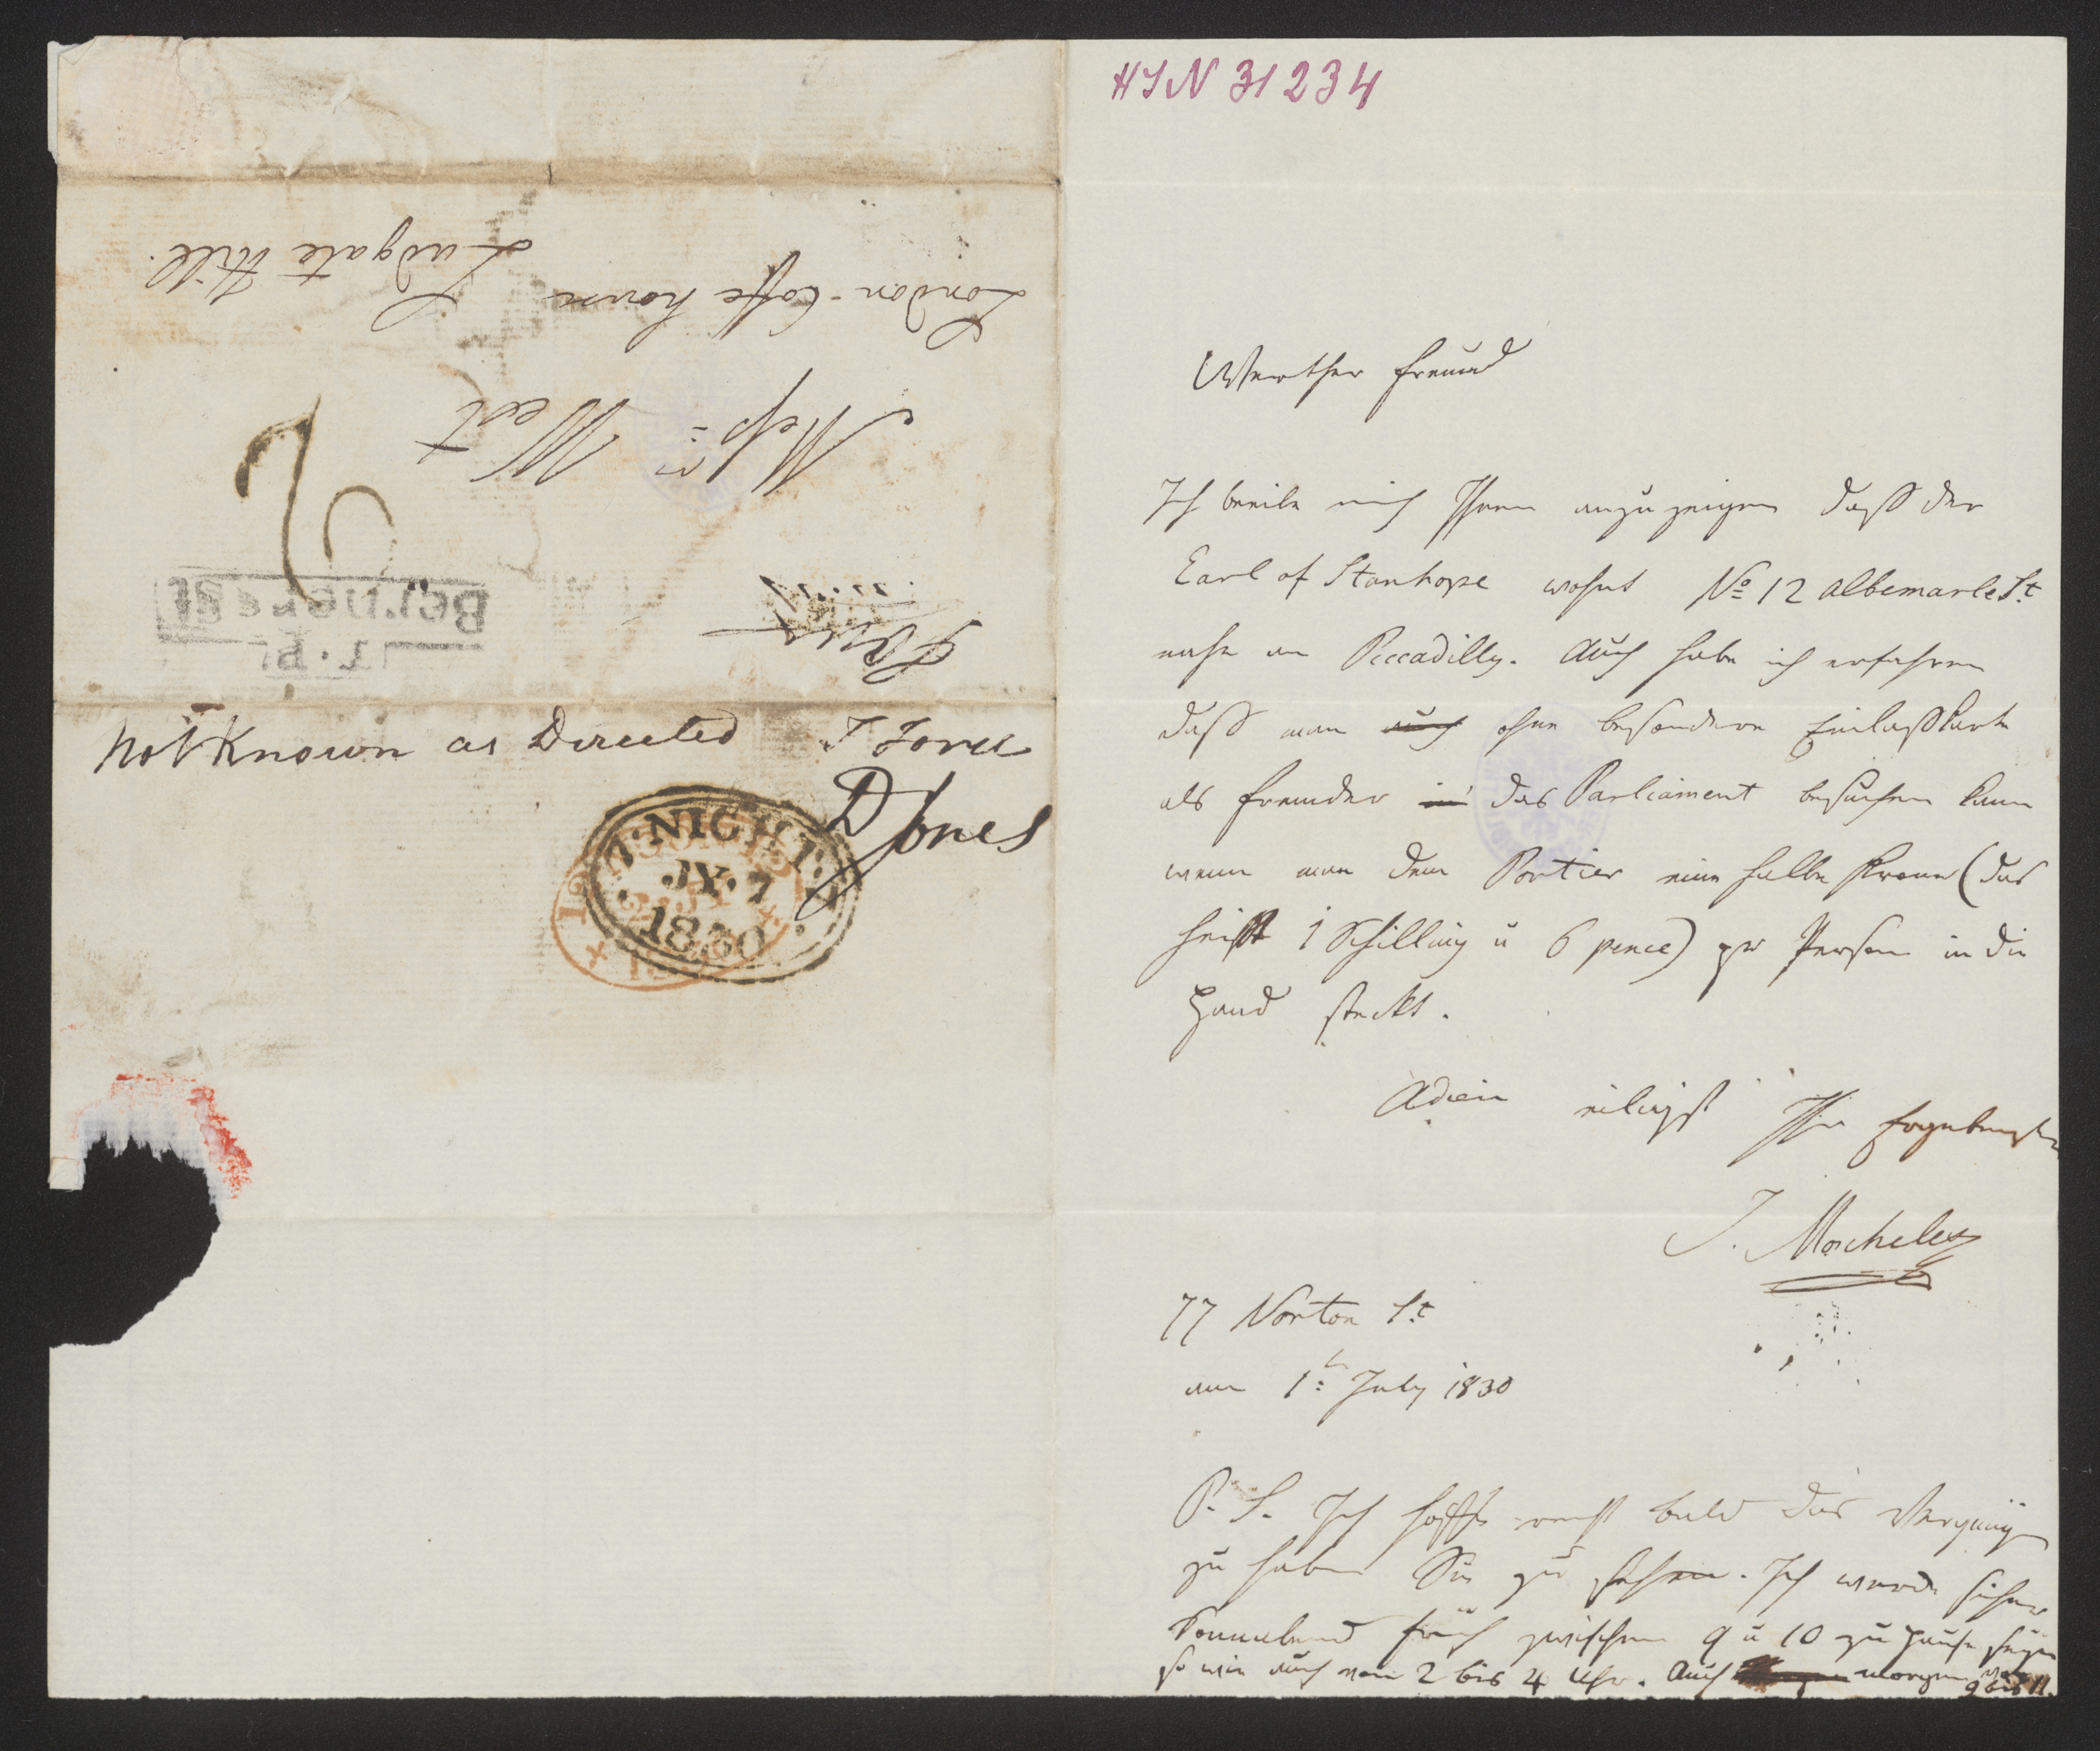 London-Coffe house
Ludgate Hill.
Mess.rs West
T.P
Bernerset
Not Known as Directed J Ford
D Jones
7. NIGHT. 7
JY. 7
1830
HIN 31234
Werther Freund
Ich beeile mich Ihnen anzuzeigen daß der
Earl of Stanhope wohnt No 12 Albemarle St.
nahe an Piccadilly. Auch habe ich erfahren
daß man auch ohne besondere Einlaßkarte
als Fremder in das Parliament besuchen kann
wenn man dem Portier eine halbe Krone (das
heißt 1 Schilling u 6 pence) pr Person in die
Hand steckt.
Adieu eiligst Ihr Ergebenster
J. Moscheles
77 Norton St.
am 1t. July 1830
P. S. Ich hoffe recht bald das Vergnügen
zu haben Sie zu sehen. Ich werde sicher
Sonnabend früh zwischen 9 u 10 zu Hause seyn
so wie auch von 2 bis 4 Uhr. Auch morgen von
9 bis 11.